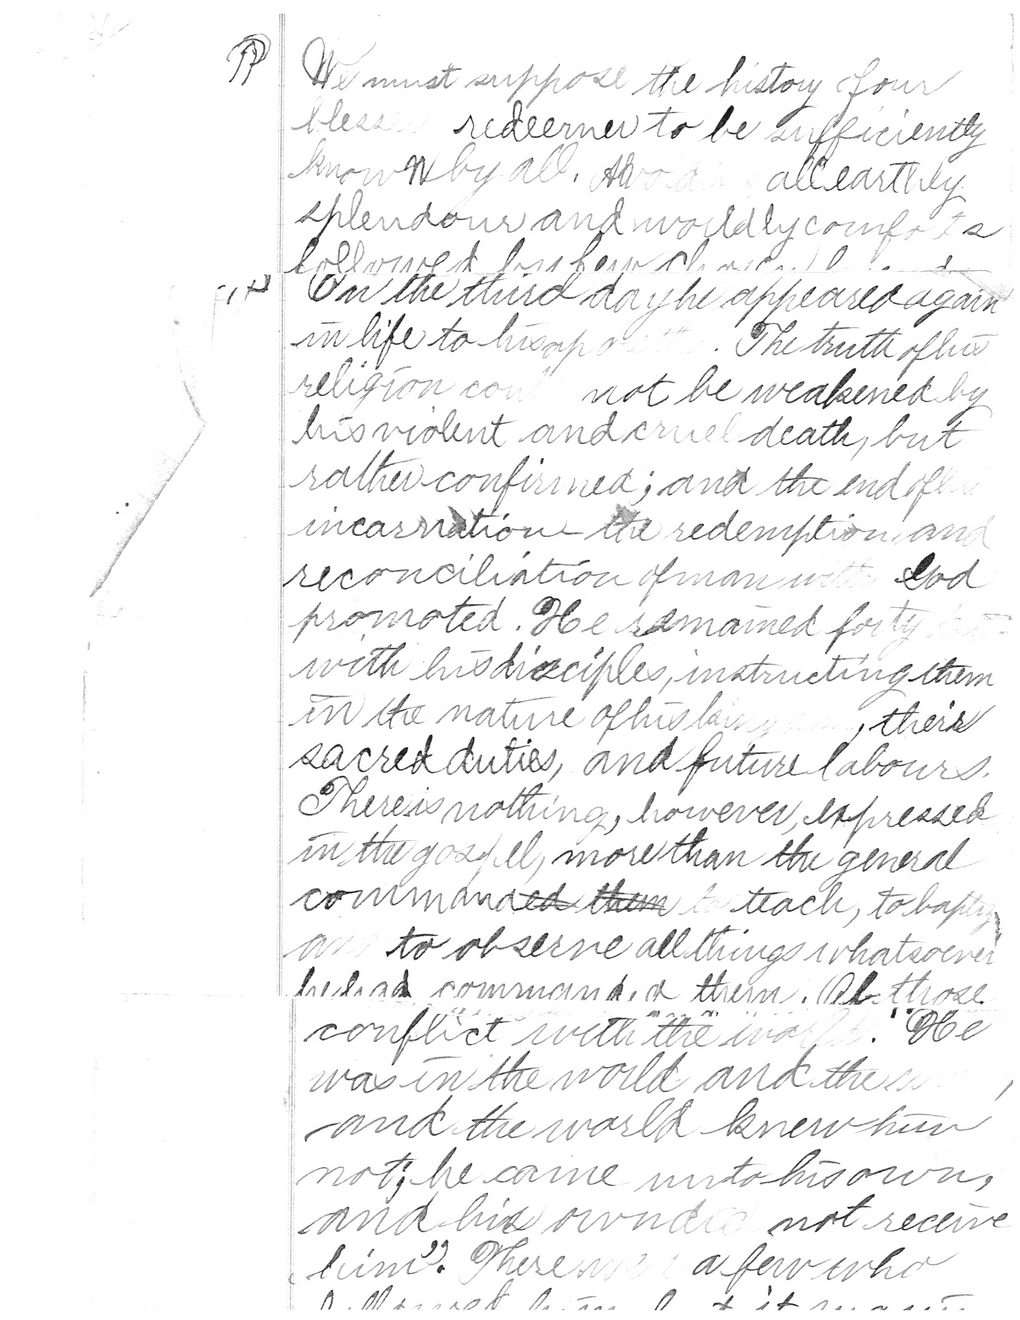 We must suppose the history of our
redeemer to be sufficiently
known by all. all earthly
splendour and worldly comforts
followed by
On the third day he appeared again
in life to his . The truth of his
religion not be weakened by
his violent and cruel death, but
rather confirmed; and the end of his
incarnation — the redemption and
reconciliation of man with God
promoted. He remained forty
with his disciples, instructing them
in the nature of his , their
sacred duties, and future labours.
There is nothing, however, expressed
in the gospel, more than the general
commanded them to teach, to baptiz
and to observe all things whatsoever
he had commanded them. Of those
conflict with the world. "He
was in the world and the
and the world knew him
not; he came unto his own,
and his own did not receive
him". There were a few who
followed him, but it